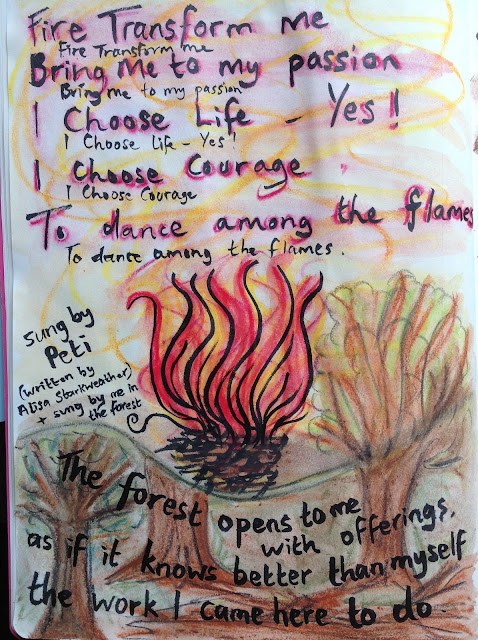 Fire Transform me
Fire Transform me
Bring Me to my passion
Bring me to my passion
I Choose Life – Yes!
I Choose Life – Yes!
I Choose Courage.
I Choose Courage
To dance among the flames
To dance among the flames.
sung by
Peti
(written by
Alisa Starkweather)
+ sung by me in
the forest
The forest opens to me
with offerings,
as if it knows better than myself
the work I came here to do